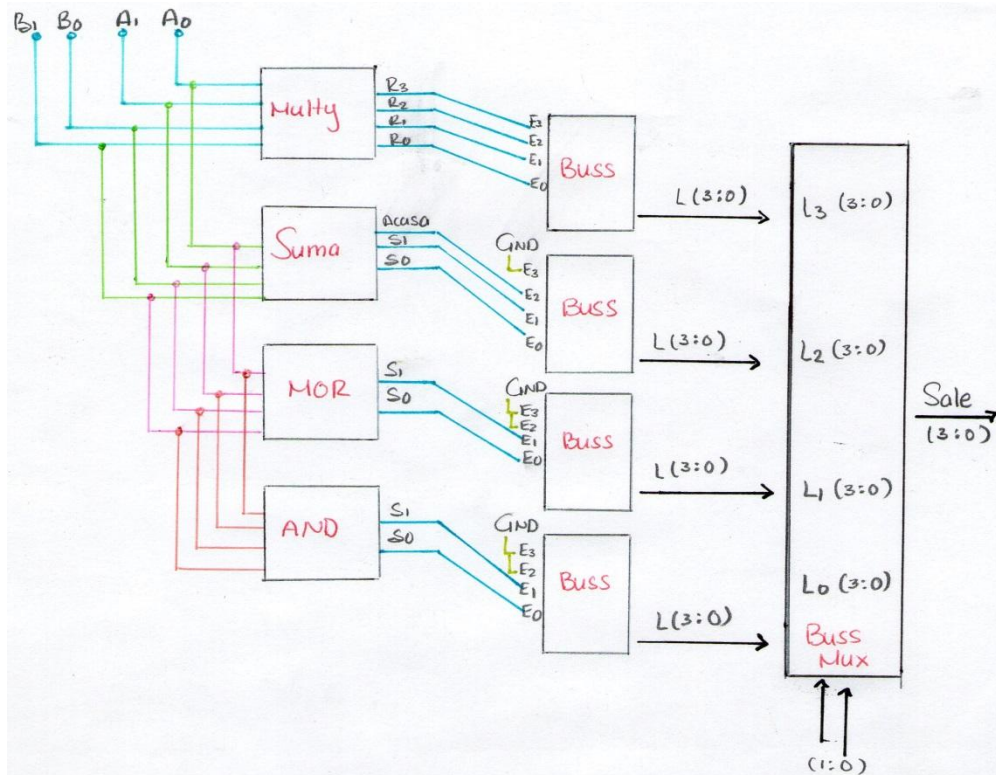 B1 B0 A1 A0
Multy
R3
R2
R1
R0
E3
E2
E1
E0
Buss
L (3:0)
L3 (3:0)
Suma
Acusa
S1
S0
GND
E3
E2
E1
E0
Buss
L(3:0)
L2 (3:0)
MOR
S1
S0
GND
E3
E2
E1
E0
Buss
L(3:0)
L1 (3:0)
AND
S1
S0
GND
E3
E2
E1
E0
Buss
L(3:0)
L0 (3:0)
Buss
Mux
Sale
(3:0)
(1:0)